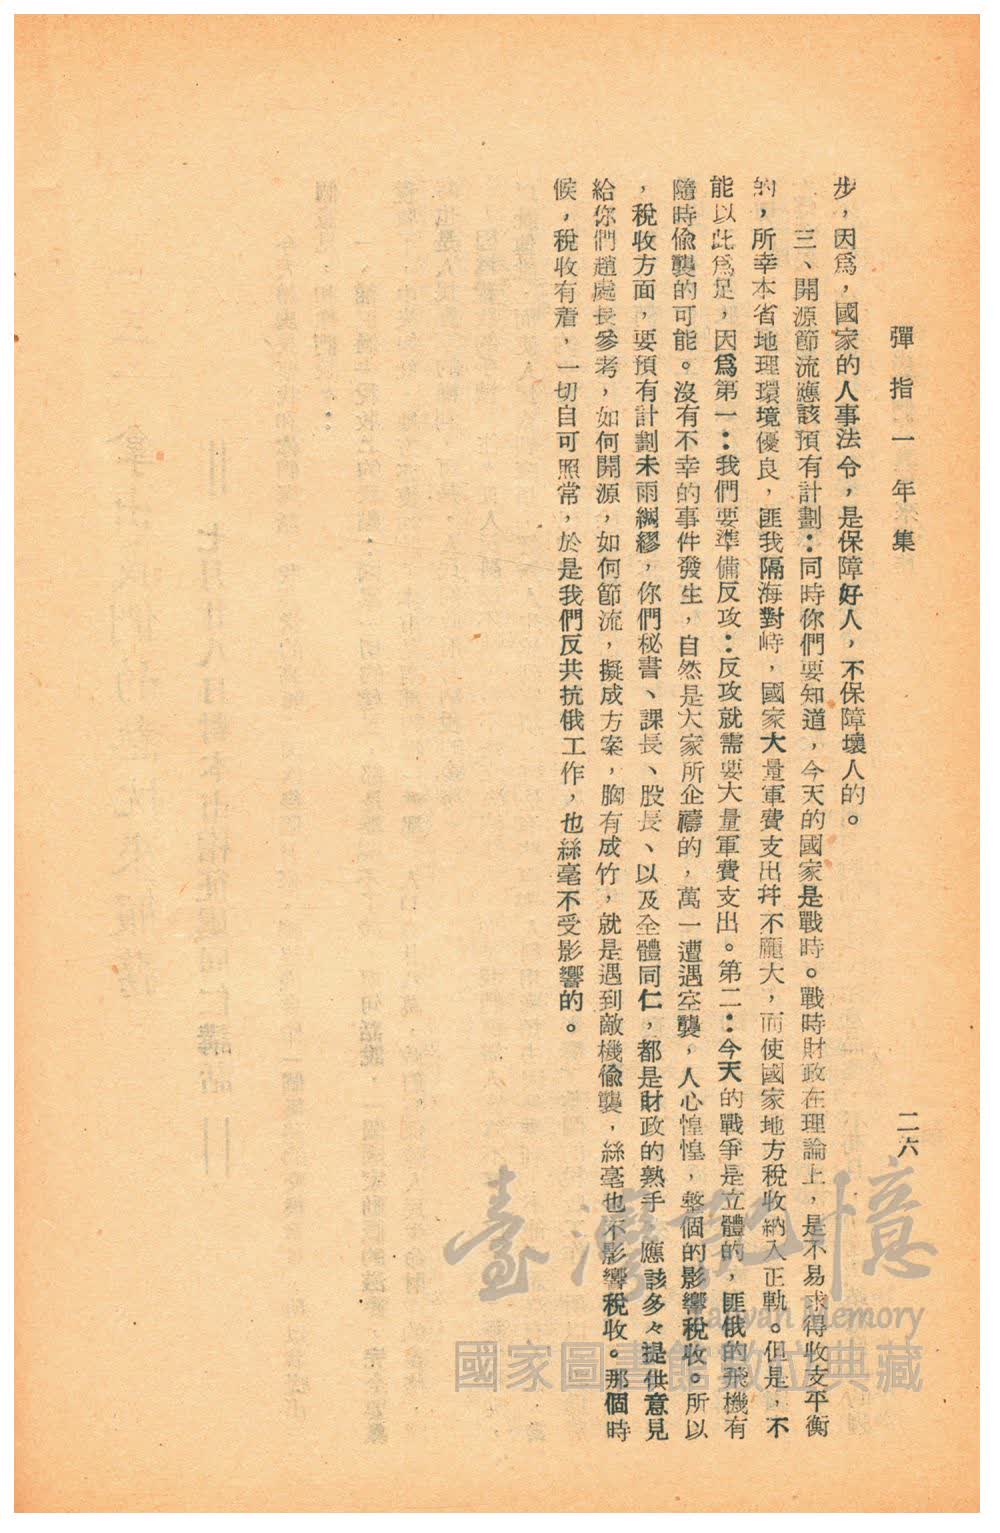 彈指一年集
二六
步，因爲，國家的人事法令，是保障好人，不保障壞人的。
三、開源節流應該預有計劃：同時你們要知道，今天的國家是戰時。戰時財政在理論上，是不易求得收支平衡
的，所幸本省地理環境優良，匪我隔海對峙，國家大量軍費支出幷不龐大，而使國家地方稅收納入正軌。但是，不
能以此爲足，因爲第一：我們要準備反攻：反攻就需要大量軍費支出。第二：今天的戰爭是立體的，匪俄的飛機有
隨時偸襲的可能。沒有不幸的事件發生，自然是大家所企禱的，萬一遭遇空襲，人心惶惶，整個的影響稅收。所以
，稅收方面，要預有計劃未雨綢繆，你們秘書、課長、股長、以及全體同仁，都是財政的熟手　應該多々提供意見
給你們趙處長參考，如何開源，如何節流，擬成方案，胸有成竹，就是遇到敵機偸襲，絲毫也不影響稅收。那個時
候，稅收有着，一切自可照常，於是我們反共抗俄工作，也絲毫不受影響的。
臺灣記憶
Taiwan Memory
國家圖書館數位典藏